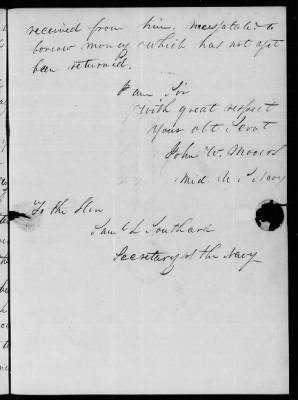 received from him, necessitated to
borrow money which has not yet
been returned.
I am Sir
with great respect
Your obt Servt
John W. Mooers
Mid. U. S. Navy
To the Hon
Saml L Southard
Secretary of the Navy